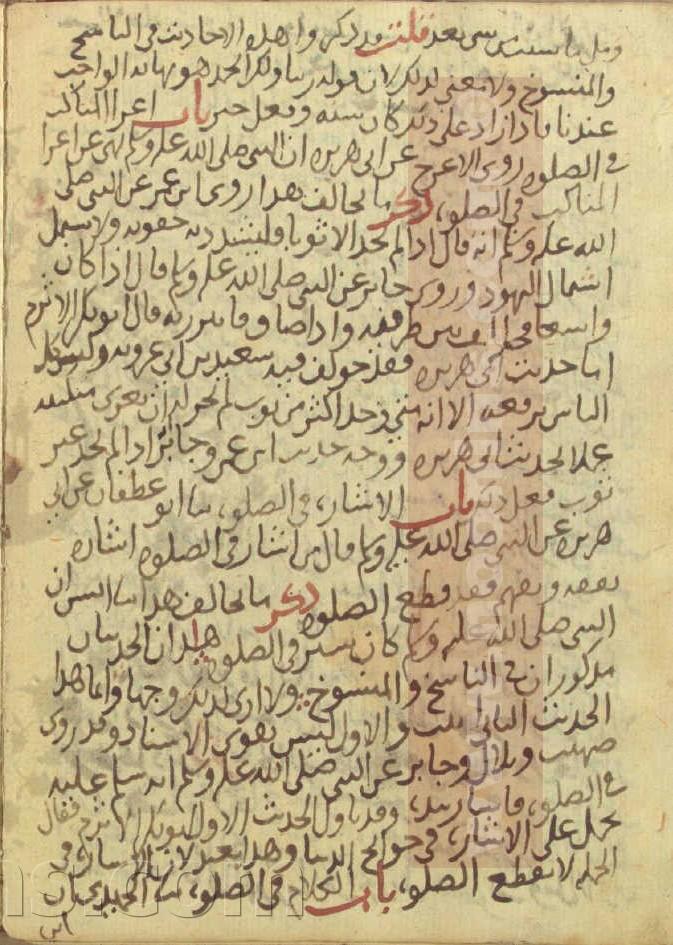 وقل ما شئت من شى بعد قلت قد ذكروا هذه الاحاديث في الناسخ
والمنسوخ ولا معنى لذلك لان قوله ربنا ولك الحمد هو نهاية الواجب
عندنا فاذا زاد على ذلك كان سنه وفعل خير باب اعرا المناكب
في الصلوه روى الاعرج عن ابى هريره ان النبى صلى الله عليه وسلم نهى عن اعرا
المناكب في الصلوه ذكر ما يخالف هذا روى ابن عمر عن النبى صلى
الله عليه وسلم انه قال اذا لم يجد الا ثوبا فليشدد به حقويه ولا يشتمل
اشتمال اليهود وروى جابر عن النبى صلى الله عليه وسلم قال اذا كان
واسعا فخالف بين طرفيه واذا ضاق فاتزر به قال ابو بكر الاثرم
اما حديث ابى هريره فقد خولف فيه سعيد بن ابى عروبه وليس كل
الناس يرفعه الا انه متى وجد اكثر من ثوب لم يجز له ان يعرى منكبيه
عملا بحديث ابى هريره ووجه حديث ابن عمر وجابر اذا لم يجد غير
ثوب فعل ذلك باب الاشاره في الصلوه ابو غطفان عن ابى
هريره عن النبى صلى الله عليه وسلم قال من اشار في الصلوه اشاره
تفقه او تفهم فقد قطع الصلوه ذكر ما يخالف هذا انس ان
النبى صلى الله عليه وسلم كان يشير في الصلوه هذان الحديثان
مذكوران في الناسخ والمنسوخ ولا ارى لذلك وجها وانما هذا
الحديث الثانى اثبت والاول ليس بقوى الاسناد وقد روى
صهيب وبلال وجابر عن النبى صلى الله عليه وسلم انه سلم عليه
في الصلوه فاشار بيده وقد تاول الحديث الاول ابو بكر الاثرم فقال
يحمل على الاشاره في حوائج الدنيا وهذا بعيد لان الاشاره في
الجمله لا تقطع الصلوه باب الكلام في الصلوه الحميدى